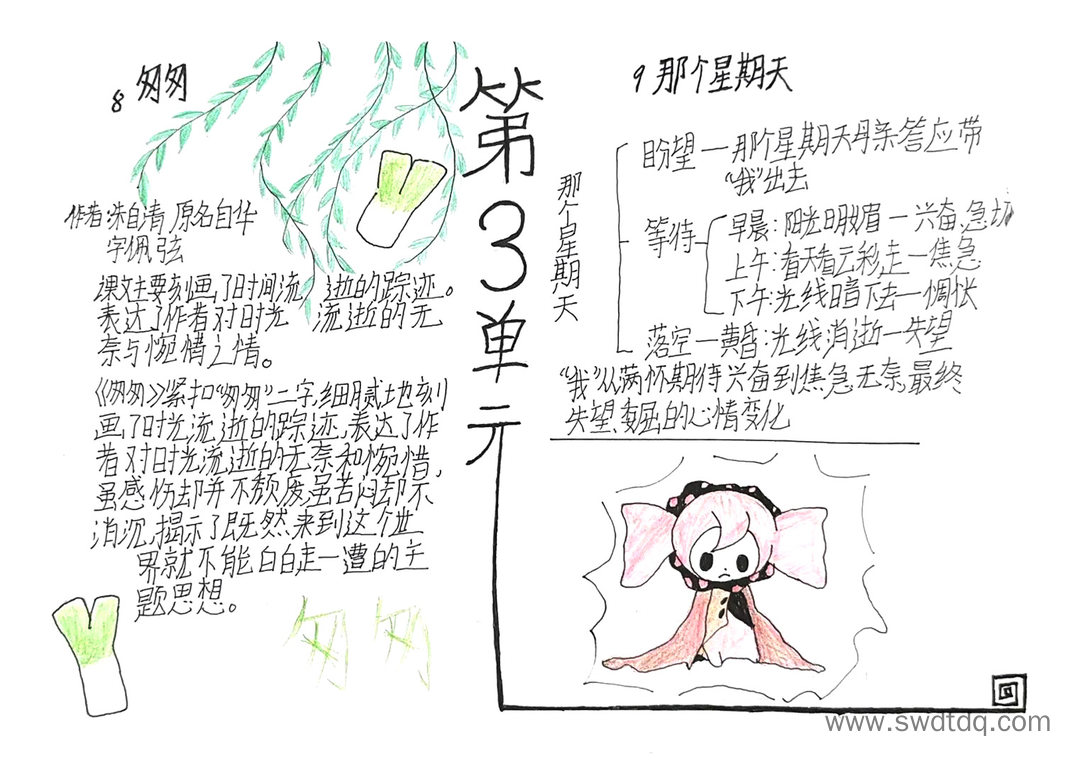 8 匆匆
作者:朱自清,原名自华
字佩弦
课文主要刻画了时间流逝的踪迹。
表达了作者对时光流逝的无
奈与惋惜之情。
《匆匆》紧扣“匆匆”二字,细腻地刻
画了时光流逝的踪迹,表达了作
者对时光流逝的无奈和惋惜,
虽感伤却并不颓废,虽苦闷却不
消沉,揭示了既然来到这个世
界就不能白白走一遭的主
题思想。
匆匆
第3单元
9 那个星期天
那个星期天
盼望—那个星期天母亲答应带
“我”出去
等待
早晨:阳光明媚—兴奋、急切
上午:看天看云彩走—焦急
下午:光线暗下去—惆怅
落空—黄昏:光线消逝—失望
“我”从满怀期待、兴奋到焦急无奈,最终
失望、委屈的心情变化
回
www.swdtdq.com